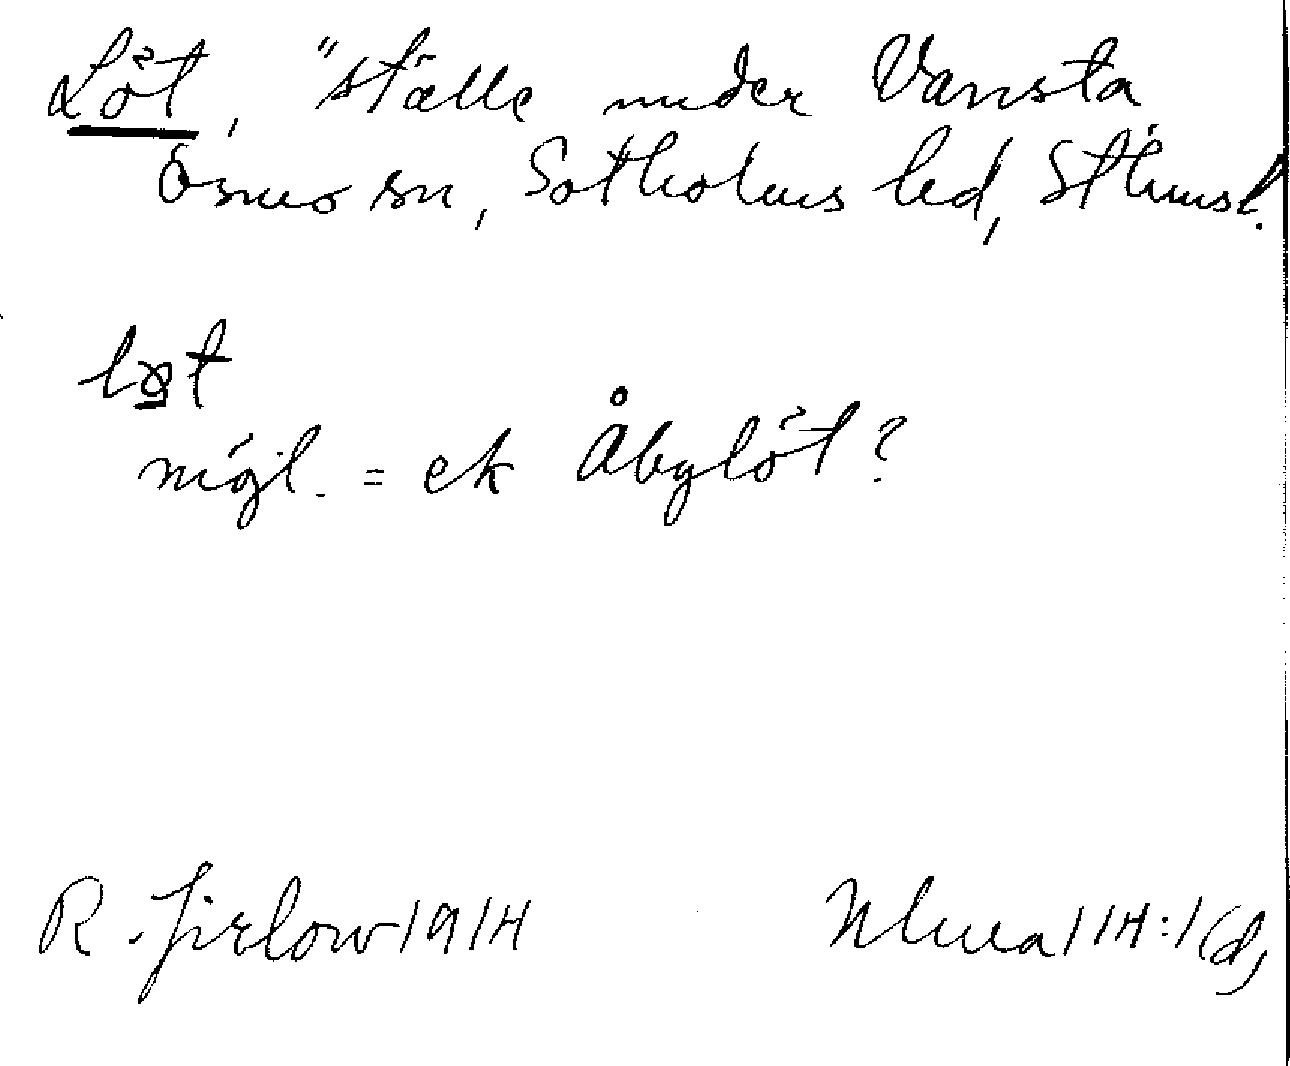 Löt, "ställe under Vansta
Ösmo sn, Sotholms hd, Sthmsl.
løt
möjl. = ek Åbylöt?
R. Jirlow 1914
114:1(d)